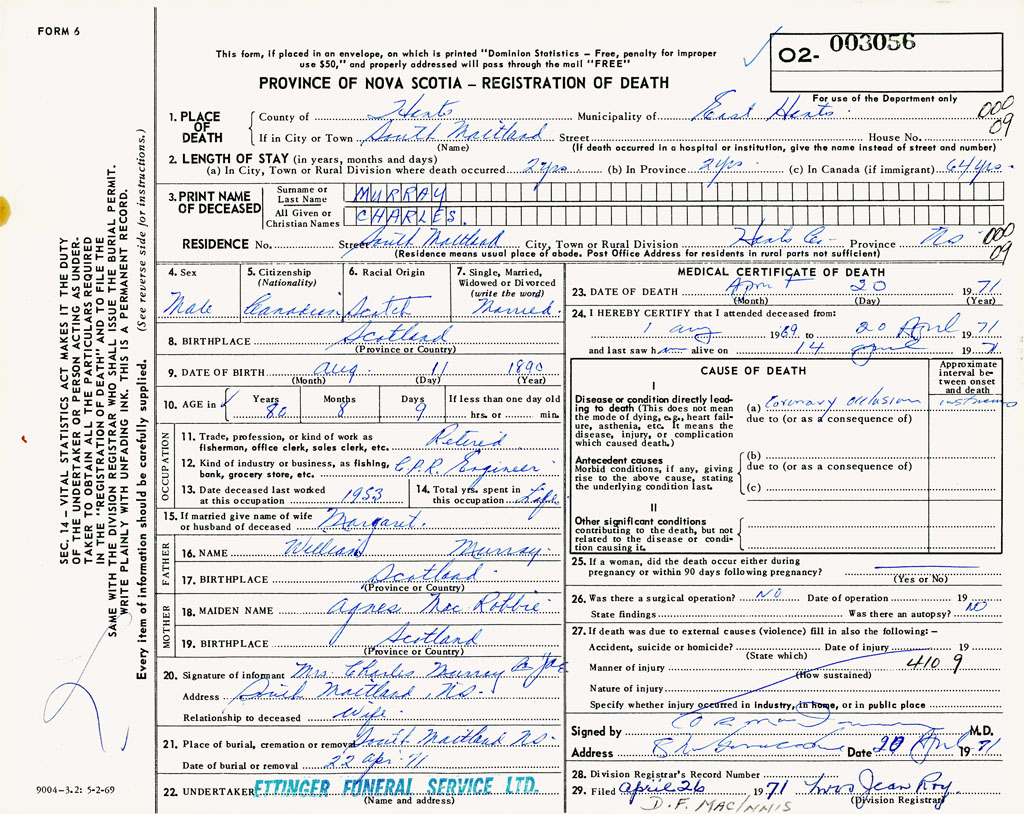 FORM 6
This form, if placed in an envelope, on which is printed "Dominion Statistics – Free, penalty for improper
use $50," and properly addressed will pass through the mail "FREE"
PROVINCE OF NOVA SCOTIA – REGISTRATION OF DEATH
O2- 003056
For use of the Department only
000
09
1. PLACE OF DEATH
County of Hants Municipality of East Hants
If in City or Town South Maitland Street House No.
(Name) (If death occurred in a hospital or institution, give the name instead of street and number)
2. LENGTH OF STAY (in years, months and days)
(a) In City, Town or Rural Division where death occurred 2 yrs. (b) In Province 2 yrs. (c) In Canada (if immigrant) 64 yrs.
3. PRINT NAME OF DECEASED
Surname or Last Name MURRAY
All Given or Christian Names CHARLES.
RESIDENCE No. Street South Maitland City, Town or Rural Division Hants Co. Province NS
(Residence means usual place of abode. Post Office Address for residents in rural parts not sufficient)
000
09
4. Sex
Male
5. Citizenship
(Nationality)
Canadian
6. Racial Origin
Scotch
7. Single, Married,
Widowed or Divorced
(write the word)
Married.
8. BIRTHPLACE Scotland
(Province or Country)
9. DATE OF BIRTH Aug. 11 1890
(Month) (Day) (Year)
10. AGE in
Years Months Days If less than one day old
80 8 9 hrs. or min.
OCCUPATION
11. Trade, profession, or kind of work as
fisherman, office clerk, sales clerk, etc. Retired
12. Kind of industry or business, as fishing,
bank, grocery store, etc. C.P.R. Engineer
13. Date deceased last worked
at this occupation 1953
14. Total yrs. spent in
this occupation Life
15. If married give name of wife
or husband of deceased Margaret.
FATHER
16. NAME William Murray
17. BIRTHPLACE Scotland
(Province or Country)
MOTHER
18. MAIDEN NAME Agnes Mac Robbie
19. BIRTHPLACE Scotland
(Province or Country)
20. Signature of informant Mrs. Charles Murray
Address South Maitland, NS.
Relationship to deceased Wife
21. Place of burial, cremation or removal South Maitland NS.
Date of burial or removal 22 Apr. 71
22. UNDERTAKER ETTINGER FUNERAL SERVICE LTD.
(Name and address)
MEDICAL CERTIFICATE OF DEATH
23. DATE OF DEATH April 20 1971
(Month) (Day) (Year)
24. I HEREBY CERTIFY that I attended deceased from:
1 Aug 1969 to 20 April 1971
and last saw him alive on 14 April 1971
CAUSE OF DEATH
Approximate
interval be-
tween onset
and death
I
Disease or condition directly lead-
ing to death (This does not mean
the mode of dying, e.g., heart fail-
ure, asthenia, etc. It means the
disease, injury, or complication
which caused death.)
(a) Coronary occlusion
due to (or as a consequence of)
Antecedent causes
Morbid conditions, if any, giving
rise to the above cause, stating
the underlying condition last.
(b)
due to (or as a consequence of)
(c)
II
Other significant conditions
contributing to the death, but not
related to the disease or condi-
tion causing it.
25. If a woman, did the death occur either during
pregnancy or within 90 days following pregnancy?
(Yes or No)
26. Was there a surgical operation? NO Date of operation 19
State findings Was there an autopsy? NO
27. If death was due to external causes (violence) fill in also the following: –
Accident, suicide or homicide? Date of injury 19
(State which)
4109
Manner of injury
(How sustained)
Nature of injury
Specify whether injury occurred in industry, in home, or in public place
Signed by M.D.
Address Date 20 April 1971
28. Division Registrar's Record Number
29. Filed April 26 1971 Mrs Jean Roy.
(Division Registrar)
D.F. MACINNIS
SEC. 14 – VITAL STATISTICS ACT MAKES IT THE DUTY
OF THE UNDERTAKER OR PERSON ACTING AS UNDER-
TAKER TO OBTAIN ALL THE PARTICULARS REQUIRED
IN THE "REGISTRATION OF DEATH" AND TO FILE THE
SAME WITH THE DIVISION REGISTRAR WHO SHALL ISSUE THE BURIAL PERMIT.
WRITE PLAINLY WITH UNFADING INK. THIS IS A PERMANENT RECORD.
Every item of information should be carefully supplied. (See reverse side for instructions.)
9004-3.2: 5-2-69